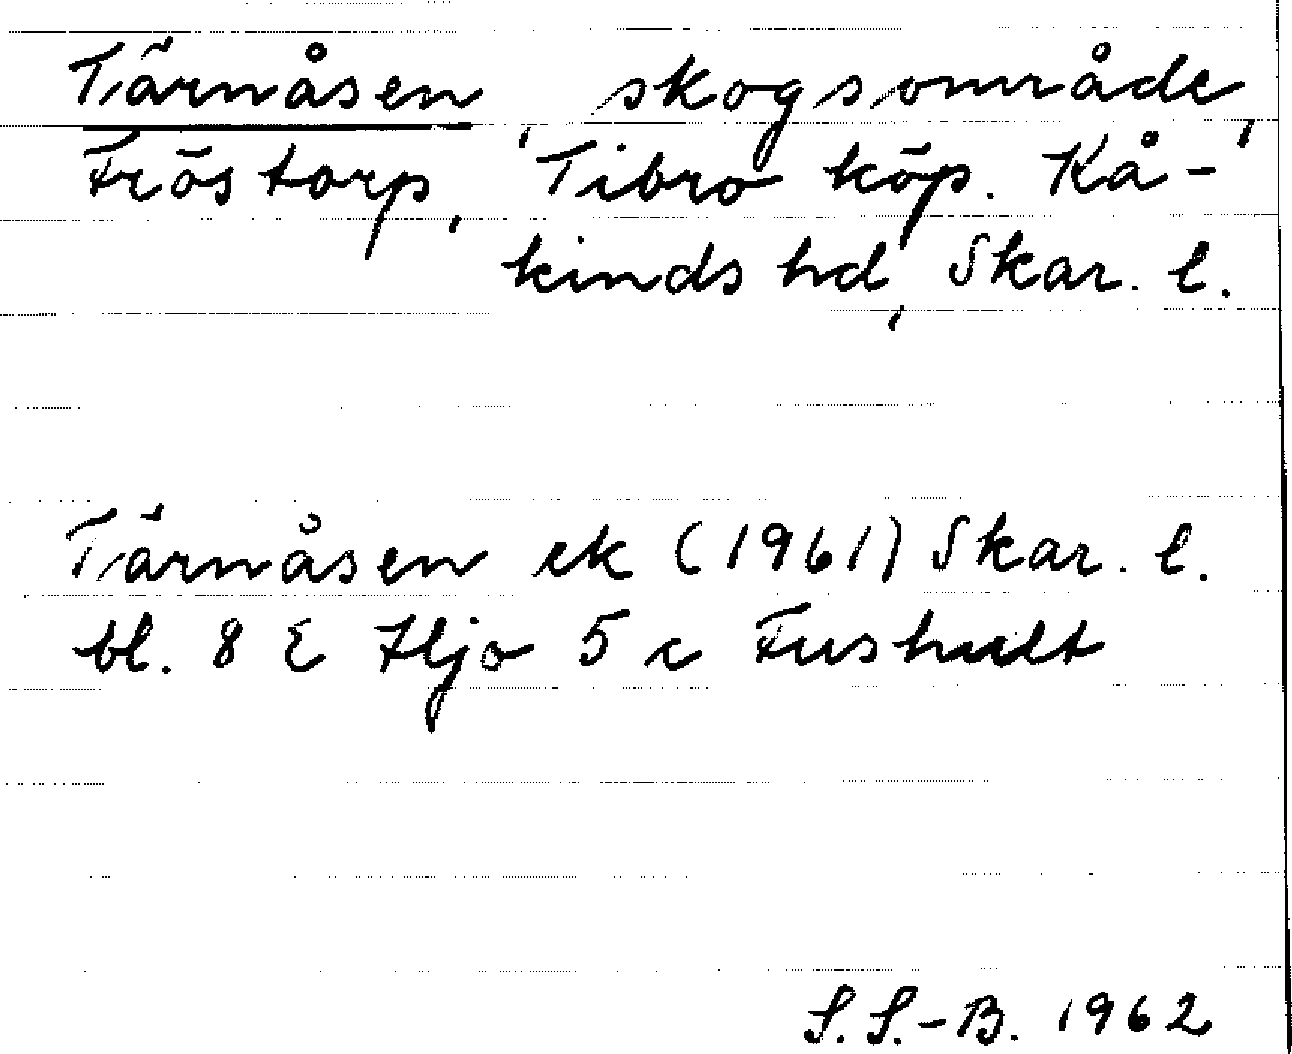 Tärnåsen, skogsområde,
Fröstorp, Tibro köp. Kå-
kinds hd, Skar. l.
Tärnåsen ek (1961) Skar. l.
bl. 8 E Hjo 5 c Fushult
S. S.-B. 1962